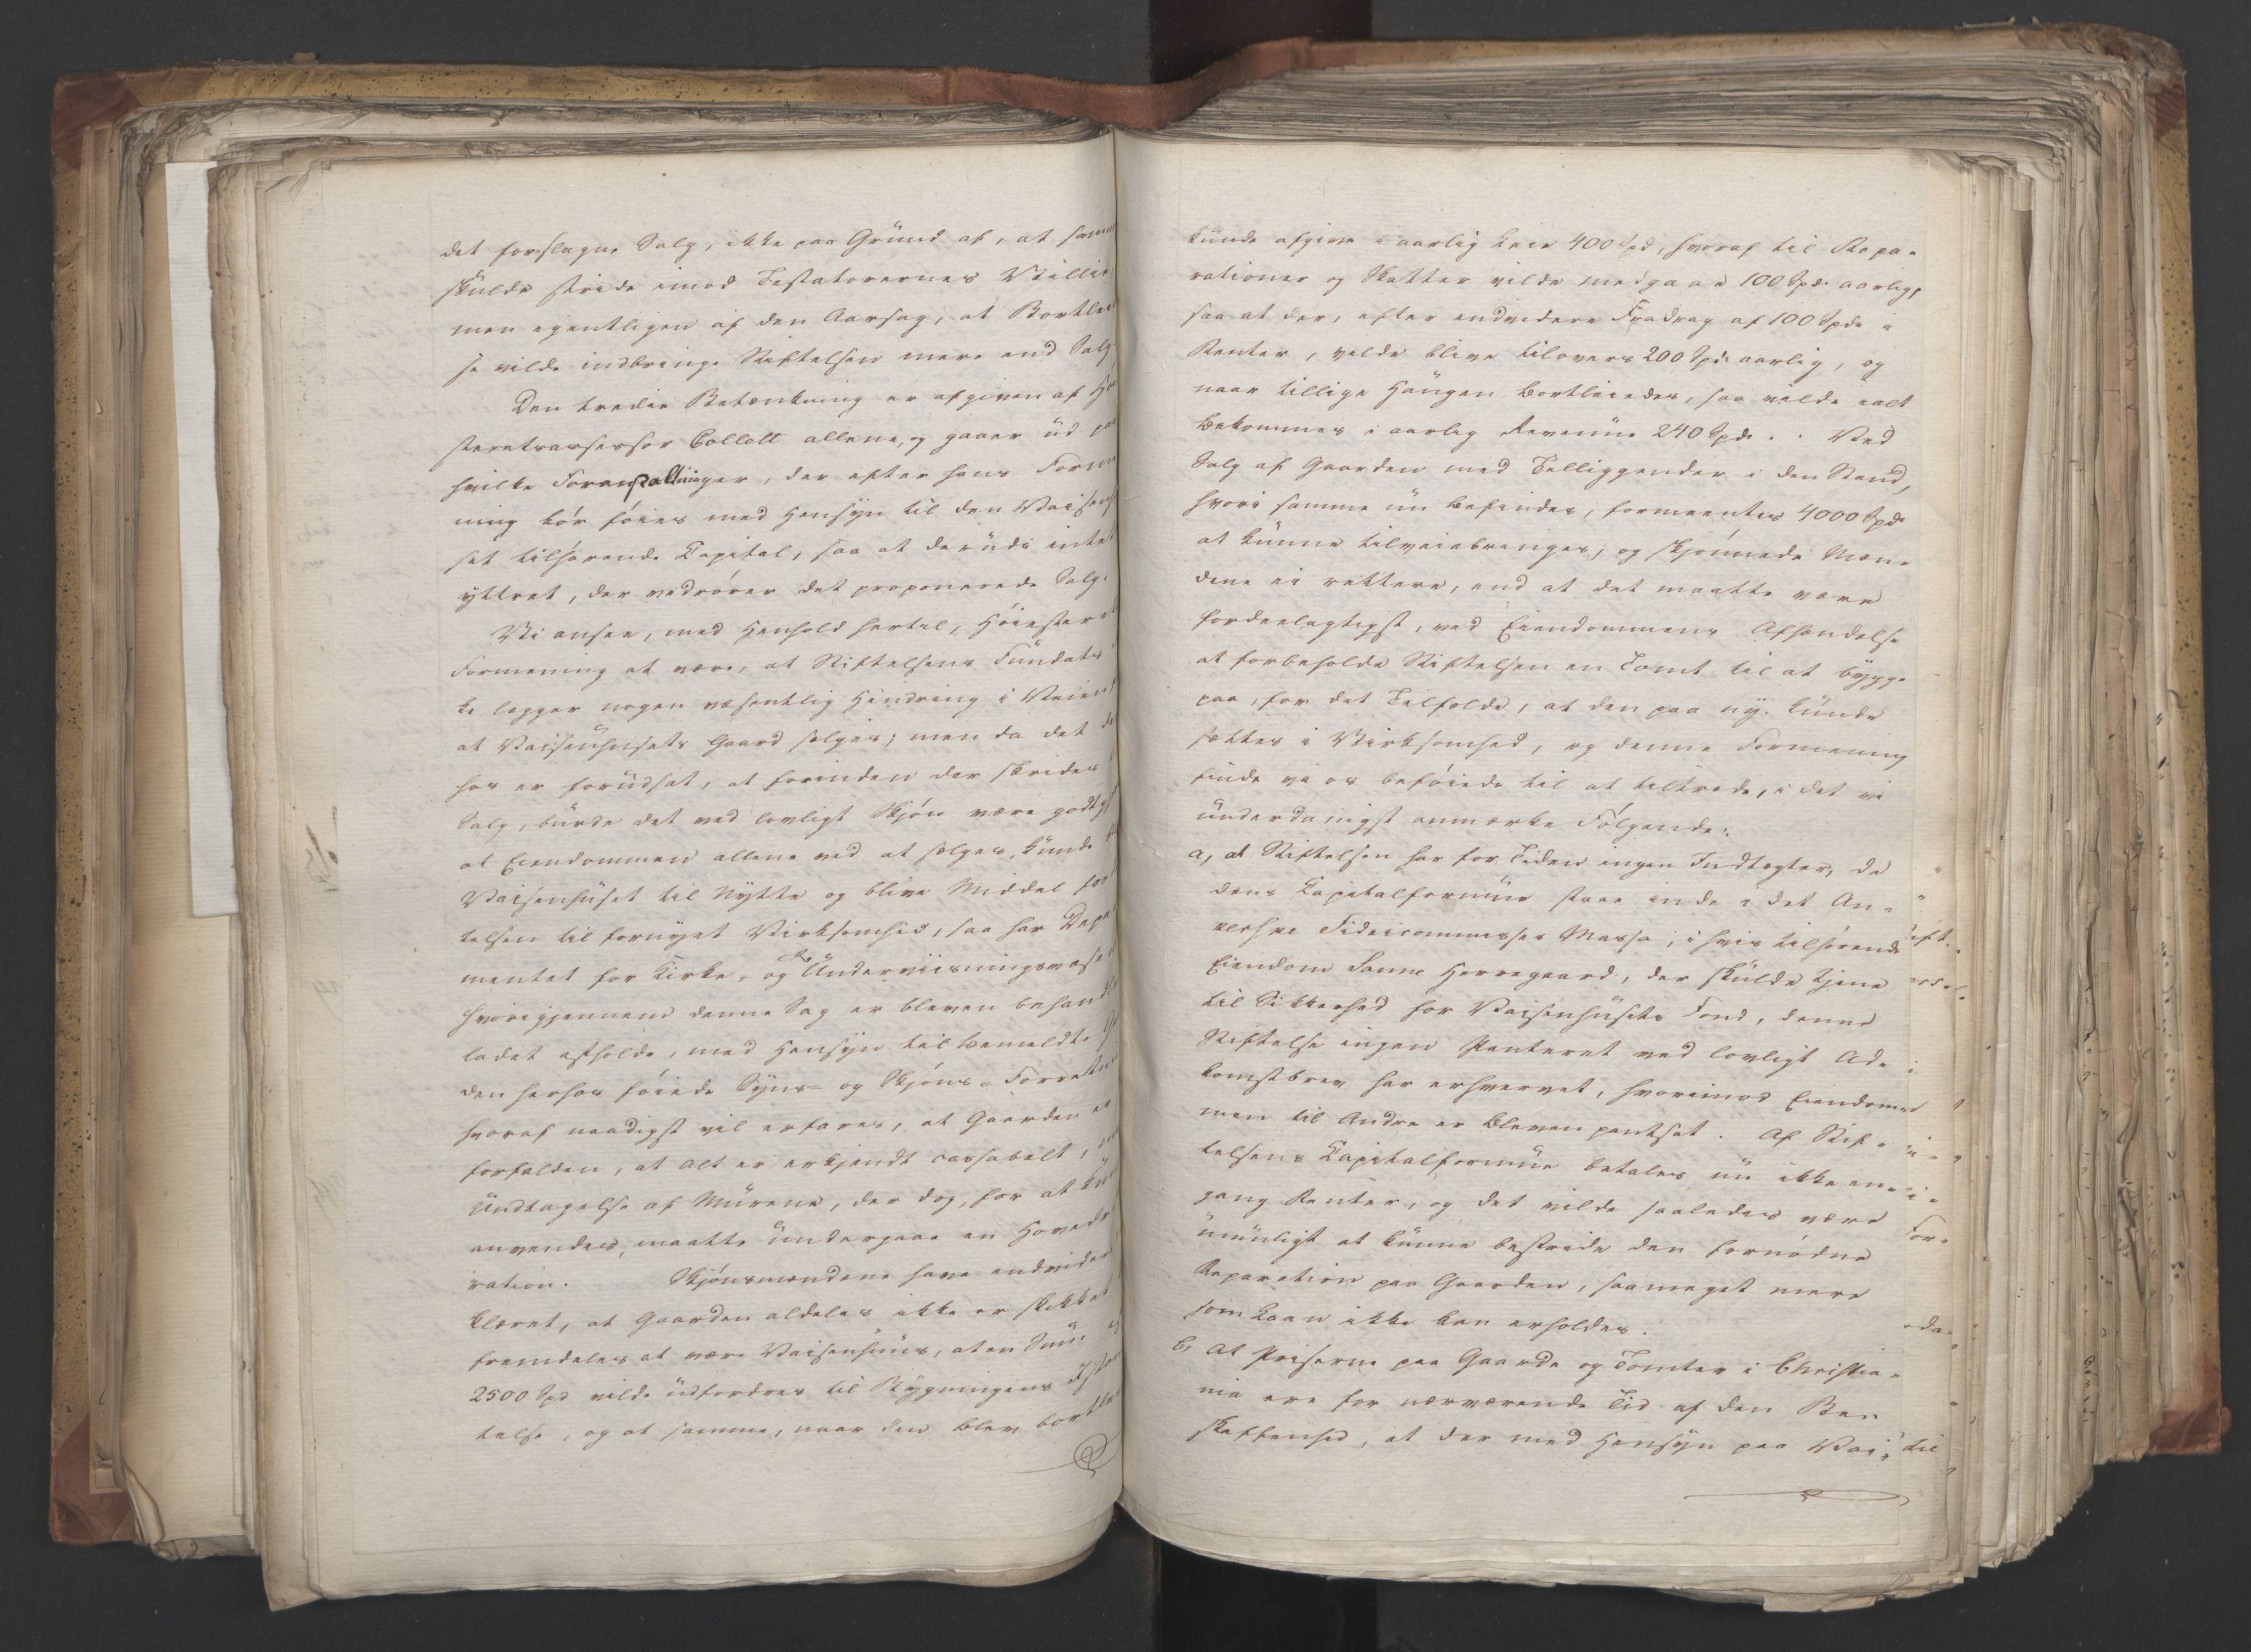 det forslagne Salg, ikke paa Grund af, at samm
skulde stride imod Testatorernes Villie
men egentligen af den Aarsag, at Bortlei
se vilde indbringe Stiftelsen mere end Salg
Den tredie Betænkning er afgiven af Hø
steretsassessor Collett allene, og gaaer ud paa
hvilke Foranstaltninger, der efter hans Forme
ning bør føies med Hensyn til den Vaisenh
set tilhørende Capital, saa at derudi intet
yttret, der vedrører det proponerede Salg.
Vi ansee, med Henhold hertil, Høiesteret
Formening at være, at Stiftelsens Fundats
ke lægger nogen væsentlig Hindring i Veien
at Vaisenhusets Gaard sælges; men da det de
hos er forudsat, at forinden der skrides
Salg, burde det ved lovligt Skjøn være godtgj
at Eiendommen allene ved at sælges, kunde
Vaisenhuset til Nytte og blive Middel for
telsen til fornyet Virksomhed, saa har Depa
mentet for Kirke- og Underviisningsvæse
hvorigjennem denne Sag er bleven behand
ladet afholde, med Hensyn til bemeldte
den herhos føiede Syns- og Skjøns-Forretn
hvoraf naadigst vil erfares, at Gaarden er
forfalden, at alt er erkjendt cassabelt,
Undtagelse af Murene, der dog, for at kun
anvendes, maatte undergaae en Hovedre
ration. Skjønsmændene have endvider
klæret, at Gaarden aldeles ikke er skikket
fremdeles at være Vaisenhuus, at en Sum
2500 Spd vilde udfordres til Bygningens Istan
telse, og at samme, naar den blev bortlei
kunde afgive i aarlig Leie 400 Spd, hvoraf til Repa-
rationer og Skatter vilde medgaae 100 Spd aarlig,
saa at der, efter endvidere Fradrag af 100 Spd i
Renter, vilde blive tilovers 200 Spd aarlig, og
naar tillige Haugen bortleiedes, saa vilde ialt
bekommes i aarlig Revenue 240 Spd. Ved
Salg af Gaarden med Tilliggender i den Stand,
hvori samme nu befindes, formeentes 4000 Spd
at kunne tilveiebringes, og skjønnede Mæn-
dene ei rettere, end at det maatte være
fordeelagtigst, ved Eiendommens Afhændelse
at forbeholde Stiftelsen en Tomt til at bygge
paa, for det Tilfælde, at den paa ny kunde
sættes i Virksomhed, og denne Formening
finde vi os beføiede til at tiltræde, i det vi
underdanigst anmærke Følgende:
a, at Stiftelsen har for Tiden ingen Indtægter, da
dens Capitalformue staae inde i det An-
kerske Fideicommisses Massa, i hvis tilhørende
Eiendom Sanne Herregaard, der skulde tjene
til Sikkerhed for Vaisenhusets Fond, denne
Stiftelse ingen Panteret ved lovligt Ad-
komstbrev har erhvervet, hvorimod Eiendom-
men til Andre er bleven pantsat. Af Stif-
telsens Capitalformue betales nu ikke en-
gang Renter, og det vilde saaledes være
umuligt at kunne bestride den fornødne
Reparation paa Gaarden, saameget mere
som Laan ikke kan erholdes.
b, at Priserne paa Gaarde og Tomter i Christia-
nia ere for nærværende Tid af den Be-
skaffenhed, at der med Hensyn paa Vai-